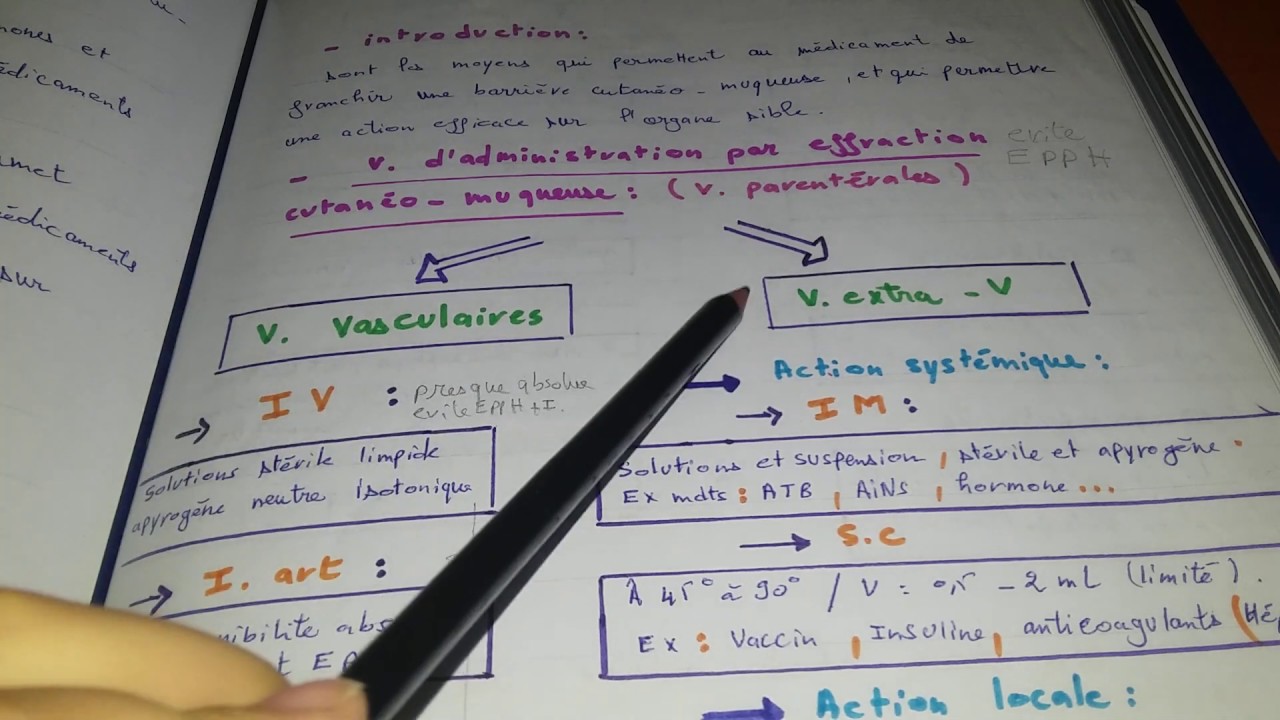 et
édicaments
met
édicaments
sur
- introduction:
sont les moyens qui permettent au médicament de
franchir une barrière cutanéo-muqueuse, et qui permettre
une action efficace sur l'organe sible.
- v. d'administration par effraction
cutanéo-muqueuse: (v. parentérales)
evite
EPPH
V. Vasculaires
IV :
presque absolue
evite EPPH+I.
Solutions stérile limpide
apyrogène neutre isotonique
I. art :
nibilite abs
t EP
V. extra-V
Action systémique:
IM:
Solutions et suspension, stérile et apyrogène.
Ex mdts: ATB, AiNS, hormone...
S.C
À 45° à 90° / V = 0,5 - 2 mL (limité).
Ex: Vaccin, Insuline, anticoagulants (Hé
Action locale: